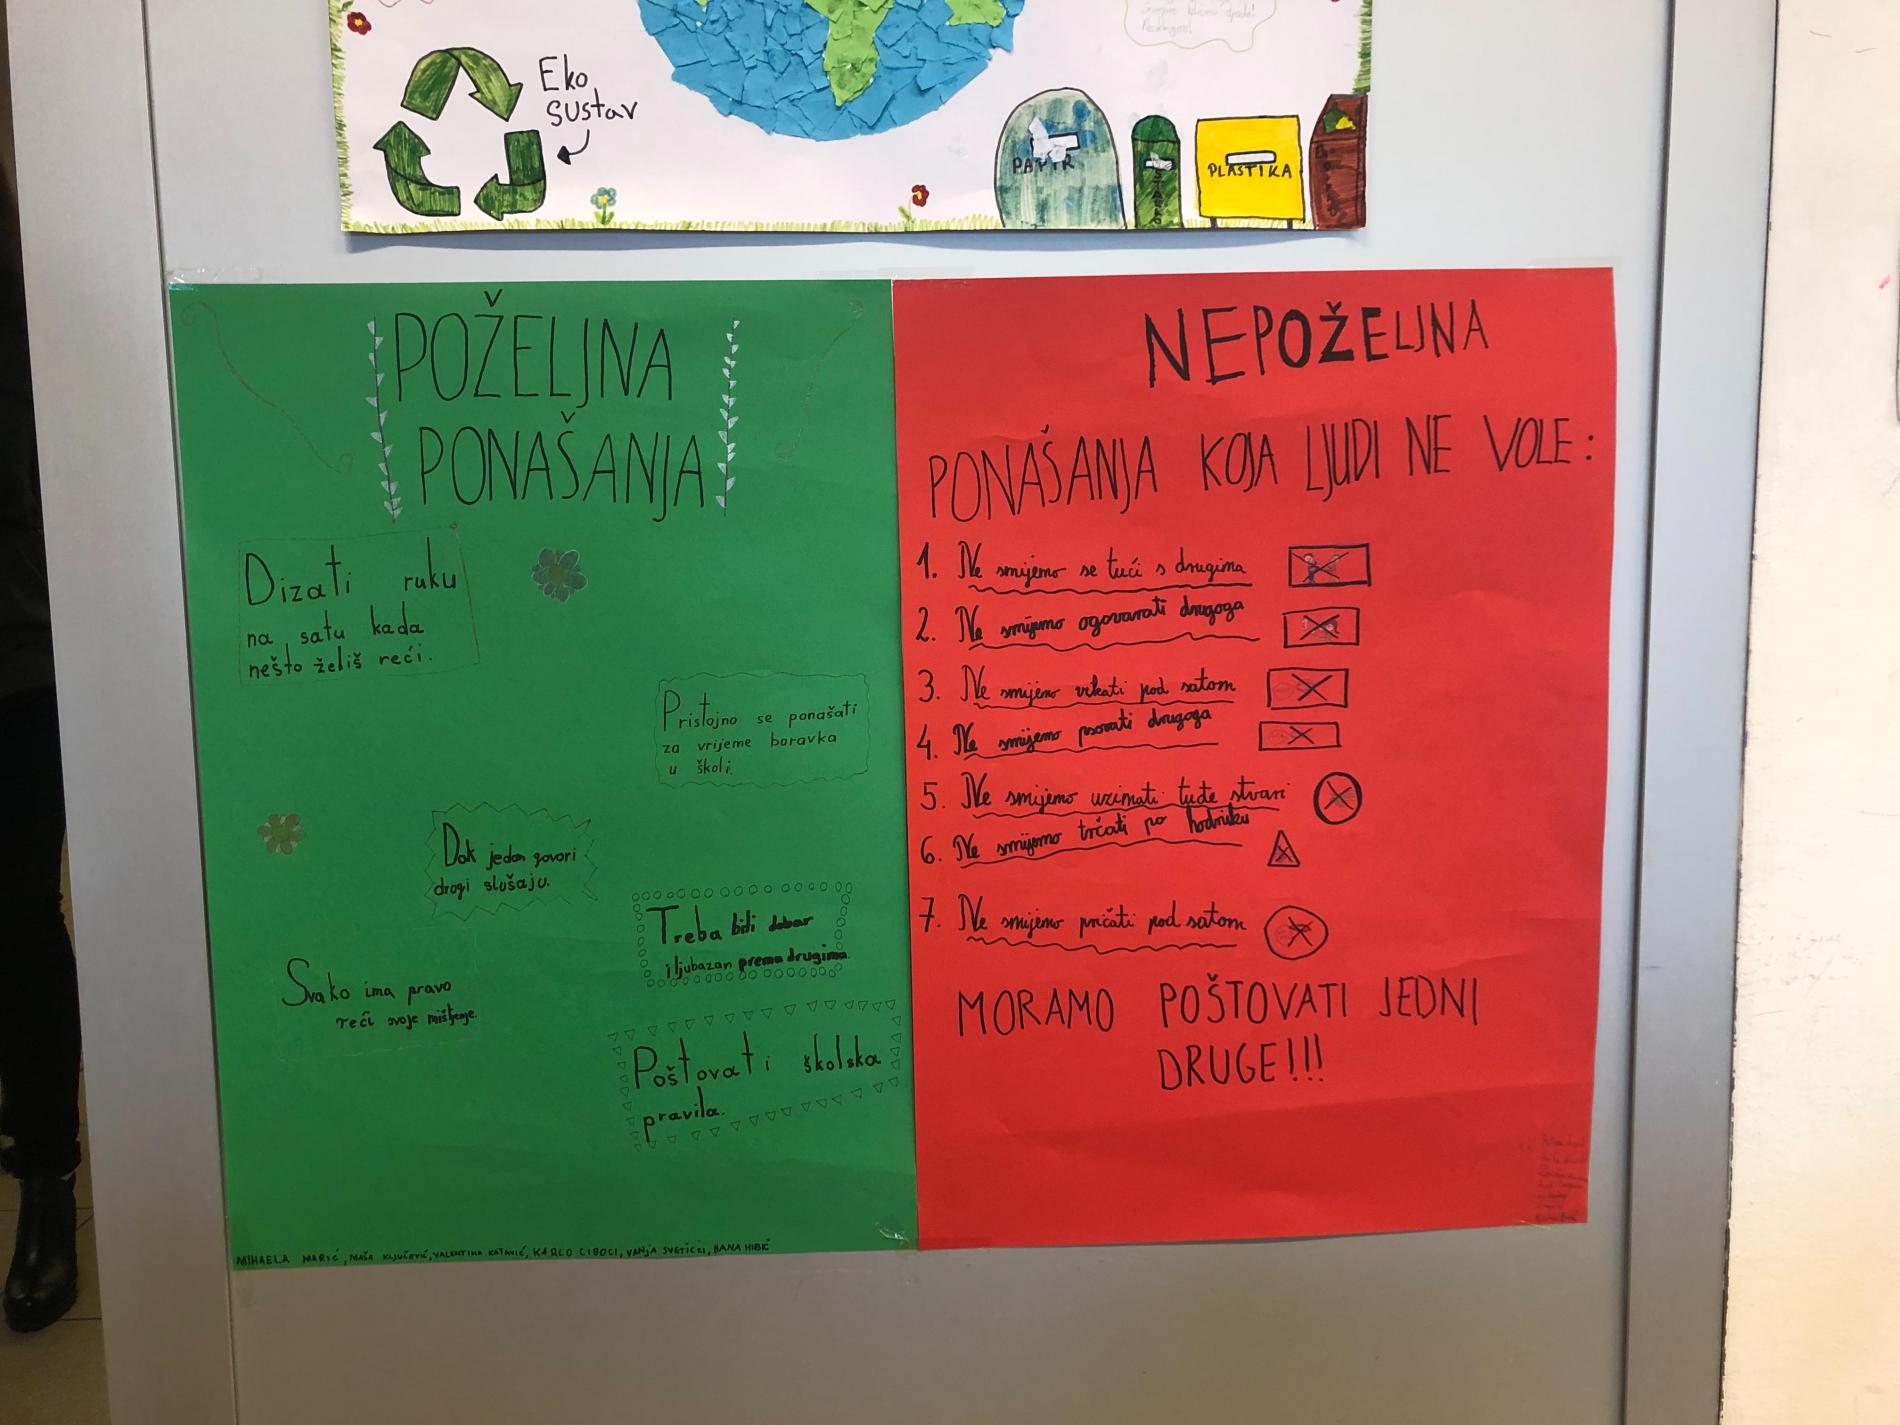 Eko
sustav
PAPIR
STAKLO
PLASTIKA
POŽELJNA
PONAŠANJA
Dizati ruku
na satu kada
nešto želiš reći.
Pristojno se ponašati
za vrijeme boravka
u školi.
Dok jedan govori
drugi slušaju.
Treba biti dobar
i ljubazan prema drugima.
Svako ima pravo
reći svoje mišljenje.
Poštovati školska
pravila.
MIHAELA MARIĆ, MAŠA KLJUČEVIĆ, VALENTINA KATAVIĆ, KARLO CIBOCI, VANJA SVETIČKI, HANA
NEPOŽELJNA
PONAŠANJA KOJA LJUDI NE VOLE:
1. Ne smijemo se tući s drugima
2. Ne smijemo ogovarati drugoga
3. Ne smijemo vikati pod satom
4. Ne smijemo psovati drugoga
5. Ne smijemo uzimati tuđe stvari
6. Ne smijemo trčati po hodniku
7. Ne smijemo pričati pod satom
MORAMO POŠTOVATI JEDNI
DRUGE!!!